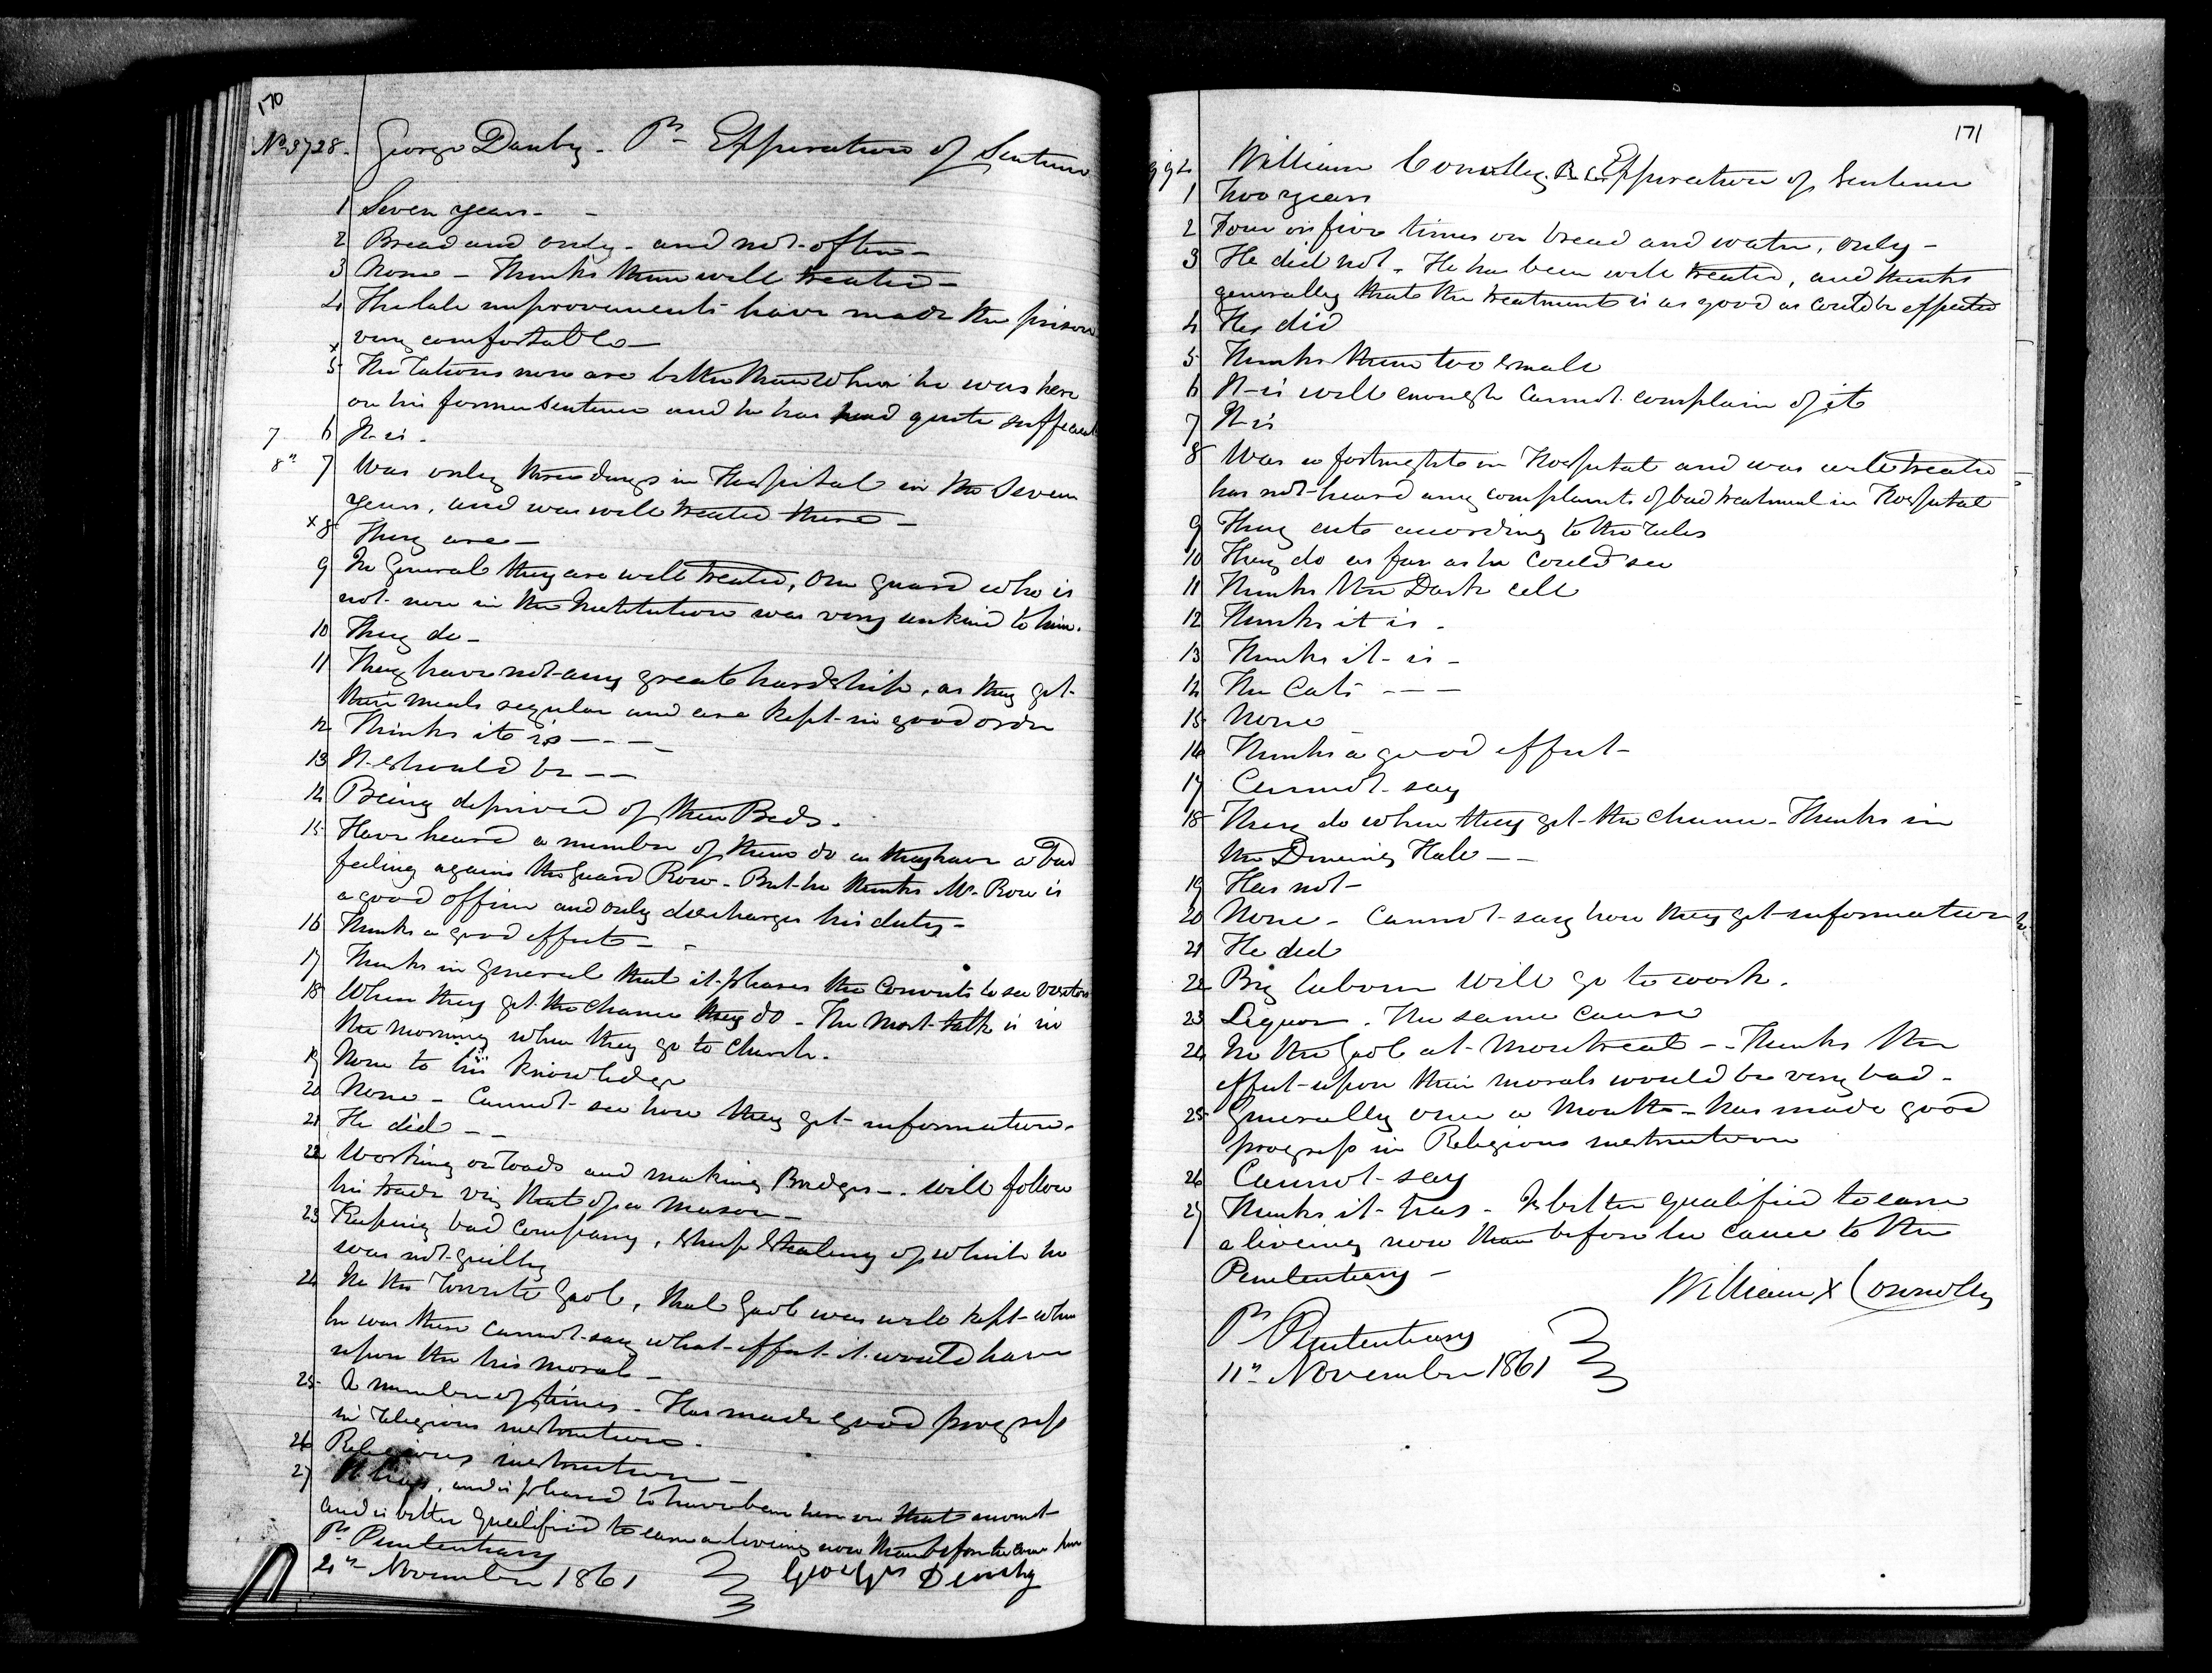 170
No 3728. George Danby - Pr Expiration of Sentence
1 Seven years - -
2 Bread and only - and not often -
3 None - Thinks them well treated -
4 The late improvements have made the prison
very comfortable -
x
5 The rations now are better than when he was here
on his former sentence and he has had quite sufficient
7 6 It is.
8" 7 Was only three days in Hospital in the seven
years, and was well treated there -
x 8 They are -
9 In general they are well treated, one guard who is
not now in the Institution was very unkind to him.
10 They do -
11 They have not any great hardship, as they get
their meals regular and are kept in good order
12 Thinks it is - - - -
13 It should be - -
14 Being deprived of their Beds.
15 Have heard a number of them do as they have a bad
feeling against the guard Row - But he thinks Mr. Row is
a good officer and only discharges his duty -
16 Thinks a good effect - -
17 Thinks in general that it pleases the Convicts to see visitors
18 When they get the chance they do - The most talk is in
the morning when they go to Church.
19 None to his knowledge
20 None - Cannot see how they get information.
21 He did - -
22 Working on roads and making Bridges - . will follow
his trade viz that of a mason -
23 Keeping bad company, sheep stealing of which he
was not guilty
24 In the Toronto Gaol, that Gaol was well kept when
he was there cannot say what effect it would have
upon the his moral -
25 A number of times - Has made good progress
in religious instructions.
26 Religious instruction -
27 It has, and is pleased to have been here on that account
and is better qualified to earn a living now than before he came here
Pr. Penitentiary
2n November 1861
George Demby
171
992 William Conolly. Expiration of Sentence
1 Two years
2 Four or five times on bread and water, only -
3 He did not. He has been well treated, and thinks
generally that the treatment is as good as could be expected
4 He did
5 Thinks them too small
6 It is well enough cannot complain of it
7 It is
8 Was a fortnight in Hospital and was well treated
has not heard any complaints of bad treatment in Hospital
9 They act according to the rules
10 They do as far as he could see
11 Thinks the Dark cell
12 Thinks it is .
13 Thinks it is -
14 The Cats - - -
15 None
16 Thinks a good effect -
17 Cannot say
18 They do when they get the chance - Thinks in
the Dineing Hall - -
19 Has not -
20 None - Cannot say how they get information
21 He did
22 By labour will go to work.
23 Liquor. The same cause
24 In the Gaol at Montreal - . Thinks the
effect upon their morals would be very bad -
25 Generally once a month - has made good
progress in Religious instruction
26 Cannot say
27 Thinks it has - Is better qualified to earn
a liveing now than before he came to the
Penitentiary -
William X Connolly
Pr. Penitentiary
11n November 1861